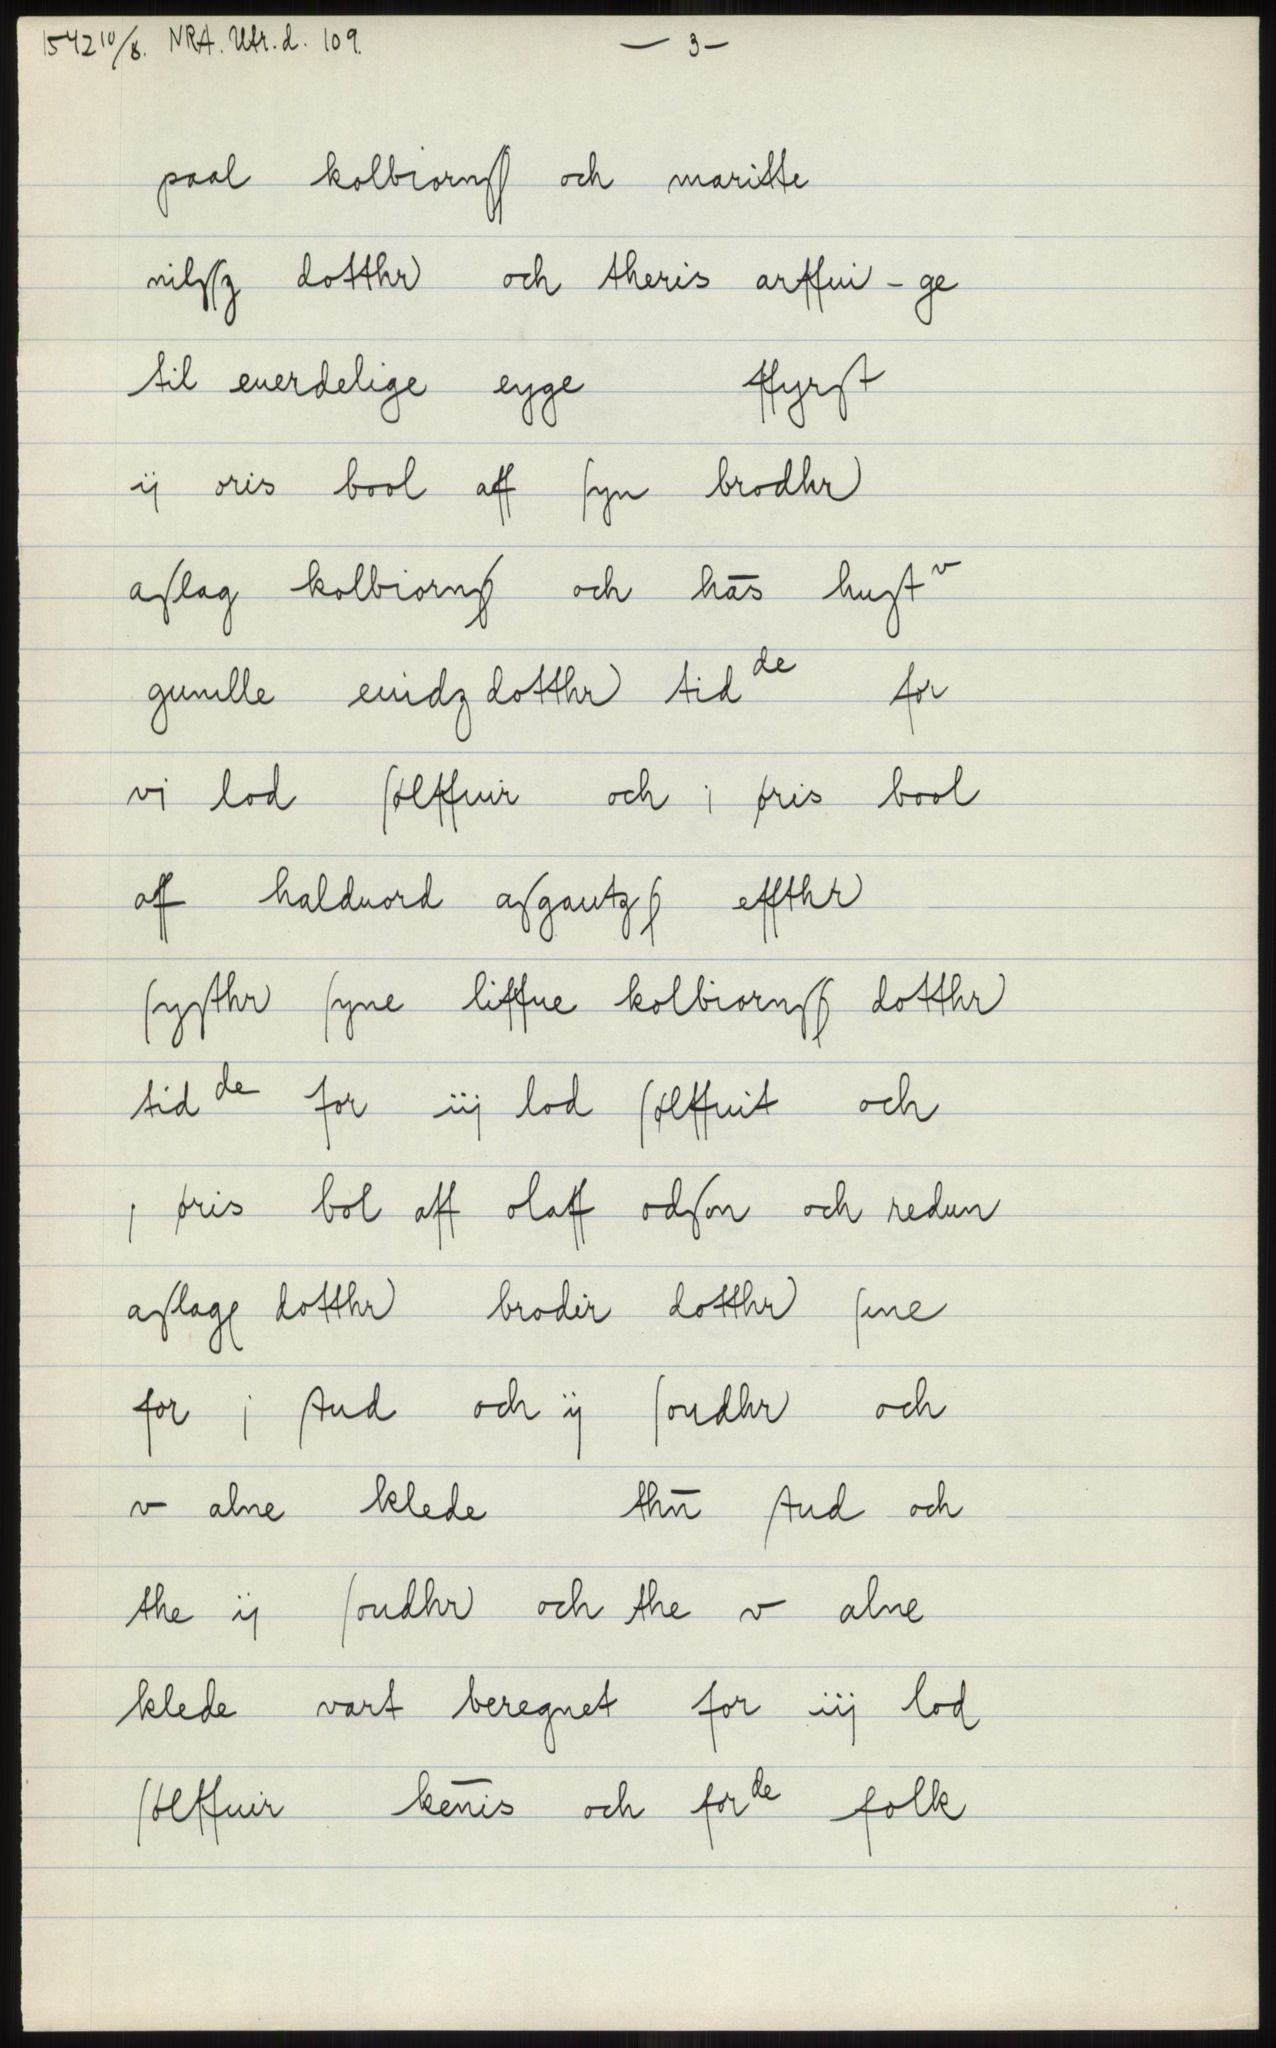 1542 10/8. NRA. Utr. d. 109. — 3 —
paal kolbiornſſ och maritte
nilſſz dotthr och theris arffui - ge
til euerdelige eyge ffyrſt
ij oris bool aff ſyn brodhr
aſlag kolbiornſ och hās huſtv
gunille euidz dotthr tid de for
vj lod ſølffuir och j øris bool
aff halduord aſgautzſ effthr
ſyſthr ſyne liffue kolbiornſſ dotthr
tid de for iij lod ſølffuit och
j øris bol aff olaff odſon och redun
aſlagſ dotthr brodir dotthr ſine
for j ſtud och ij ſoudhr och
v alne klede thn̄ ſtud och
the ij ſoudhr och the v alne
klede vart beregnet for iij lod
ſølffuir kēnis och for de folk